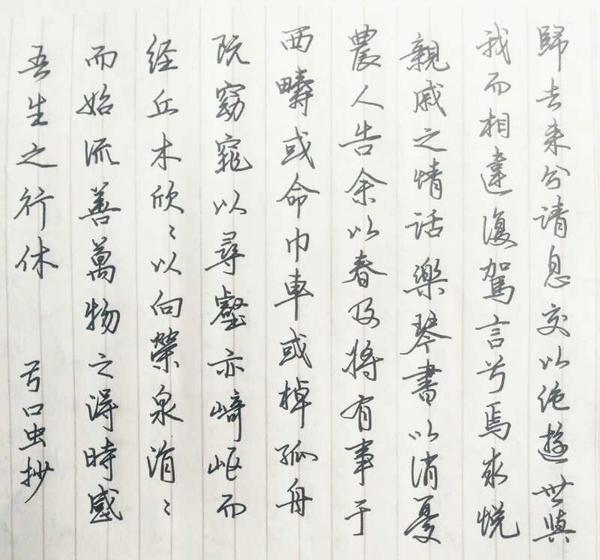 歸去来兮請息交以絶遊世與
我而相違復駕言兮焉求悦
親戚之情話樂琴書以消憂
農人告余以春及将有事于
西疇或命巾車或棹孤舟
既窈窕以尋壑亦崎岖而
经丘木欣〻以向榮泉涓〻
而始流善萬物之得時感
吾生之行休 兮口虫抄